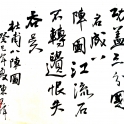 功蓋三分國
名成八
陣圖江流石
不轉遺恨失
吞吳
杜甫八陣圖